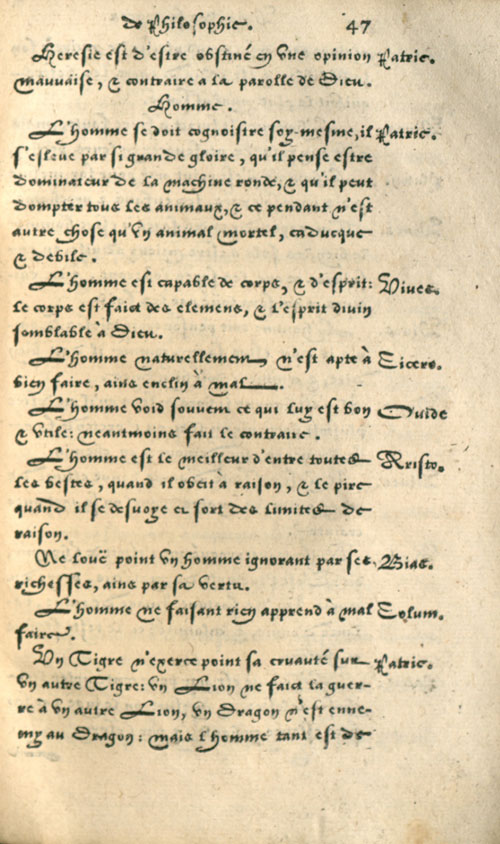 de Philosophie. 47
Heresie est d'estre obstiné en vne opinion Patric.
mauuaise, & contraire a la parolle de Dieu.
Homme.
L'homme se doit cognoistre soy-mesme, il Patric.
s'esleue par si grande gloire, qu'il pense estre
dominateur de la machine ronde, & qu'il peut
dompter tous les animaux, & ce pendant n'est
autre chose qu'vn animal mortel, caducque
& debile.
L'homme est capable de corps, & d'esprit: Viues.
le corps est faict des elemens, & l'esprit diuin
semblable à Dieu.
L'homme naturellement n'est apte à Cicero.
bien faire, ains enclin à mal.
L'homme void souuent ce qui luy est bon Ouide
& vtile: neantmoins fait le contraire.
L'homme est le meilleur d'entre toutes Aristo.
les bestes, quand il obeit à raison, & le pire
quand il se desuoye et sort des limites de
raison.
Ne louë point vn homme ignorant par ses Bias.
richesses, ains par sa vertu.
L'homme ne faisant rien apprend à mal Colum.
faire.
Vn Tigre n'exerce point sa cruauté sur Patric.
vn autre Tigre: vn Lion ne faict la guer-
re à vn autre Lion, vn Dragon n'est enne-
my au Dragon: mais l'homme tant est de